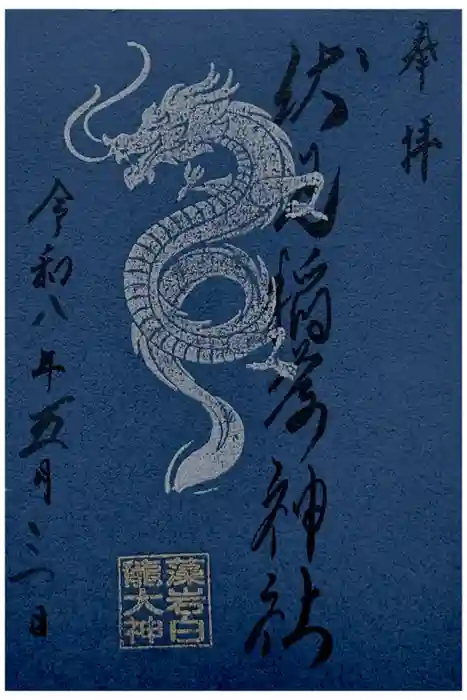 奉拝
伏見稲荷神社
藻岩白
龍大神
令和八年五月三日